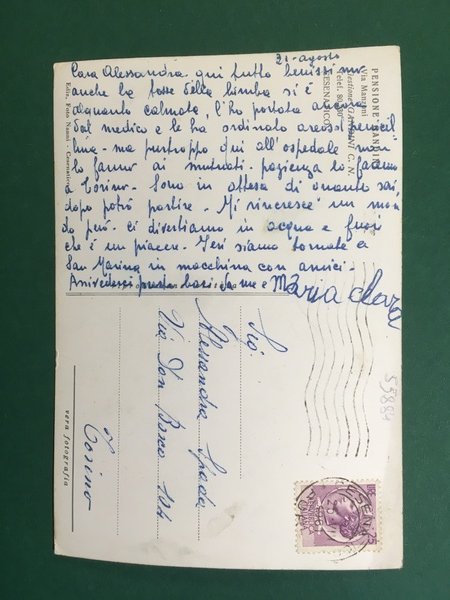 31-agosto
Cara Alessandra qui tutto benissimo
anche la tosse della bimba si è
alquanto calmata, l'ho portata ancora
dal medico e le ha ordinato areosol
lina - ma purtroppo qui all'ospedale non
lo fanno ai mutuati - pazienza lo faremo
a Torino - Sono in attesa di quanto sai,
dopo potrò partire - Mi rincresce un mon
do però - ci divertiamo in acqua e fuori
che è un piacere - Ieri siamo tornate a
San Marino in macchina con amici -
Arrivederci presto baci da me e Maria Clara
PENSIONE
Via Manzoni
Gestione
Telef.
CESENATICO
Ediz. Foto Nanni - Cesenatico
Sig.
Alessandra Spada
Via Don Bosco
Torino
vera fotografia
55884
25